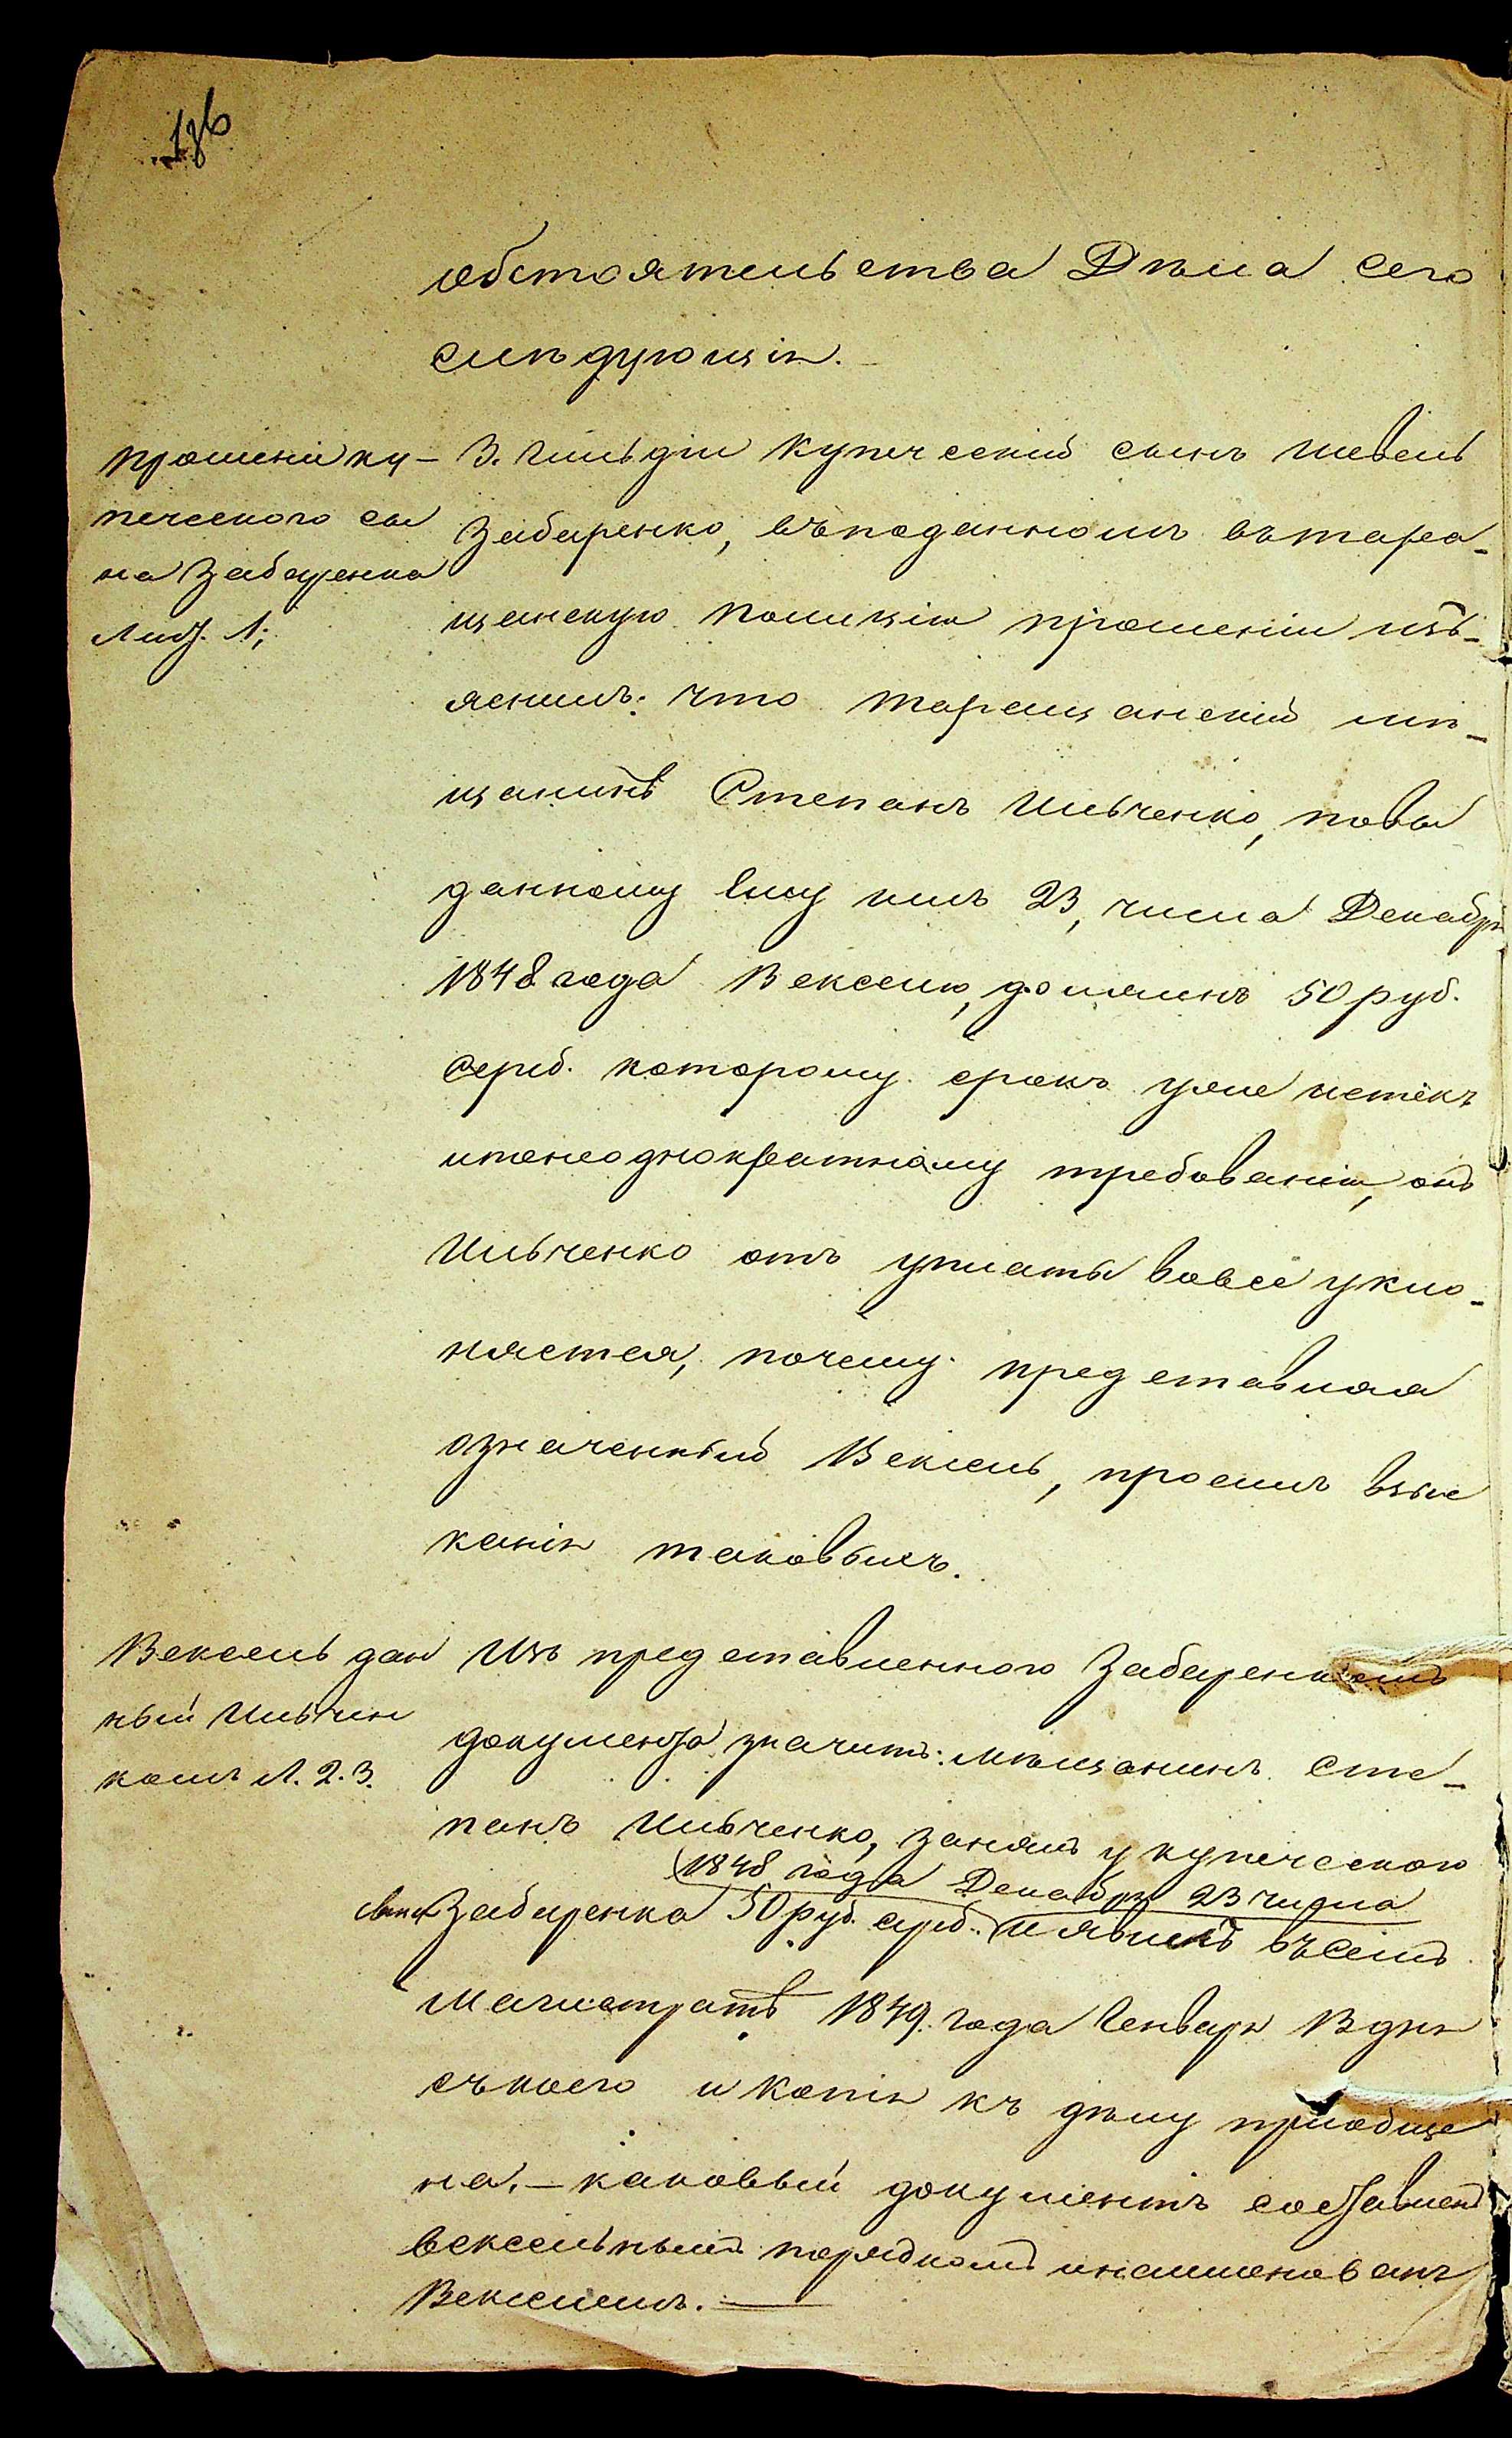 обстоятельства Дѣла сего
слѣдующія.
прошеніе ку-
печеского сы
на Забаренка
Лист. 1;
3. гильдіи купеческій сынъ Шевель
Забаренко, въ поданномъ въ тара-
щанскую полицію прошеніи изъ-
яснилъ: что таращанскій мѣ-
щанинъ Степанъ Ильченко, по вы
данному ему имъ 23, числа Декабря
1848 года Векселю, долженъ 50 руб.
сереб. которому срокъ уже истекъ
и по неоднократному требованію, онъ
Ильченко отъ уплаты вовсе укло-
няется, почему представляя
означенный Вексель, просилъ взыс
канія таковыхъ.
Вексель дан
ный Ильчен
комъ Л. 2. 3.
Изъ представленного Забаренкомъ
документа значитъ: мѣщанинъ Сте-
панъ Ильченко, занялъ у купеческого
1848 года Декабря 23 числа
сына Забаренка 50 руб. сереб. и явилъ въ семъ
Магистратѣ 1849. года Генваря 3 дня
съ коего и копія къ дѣлу пріобще
на. — каковый документъ составленъ
вексельнымъ порядкомъ и наименованъ
Векселемъ. —